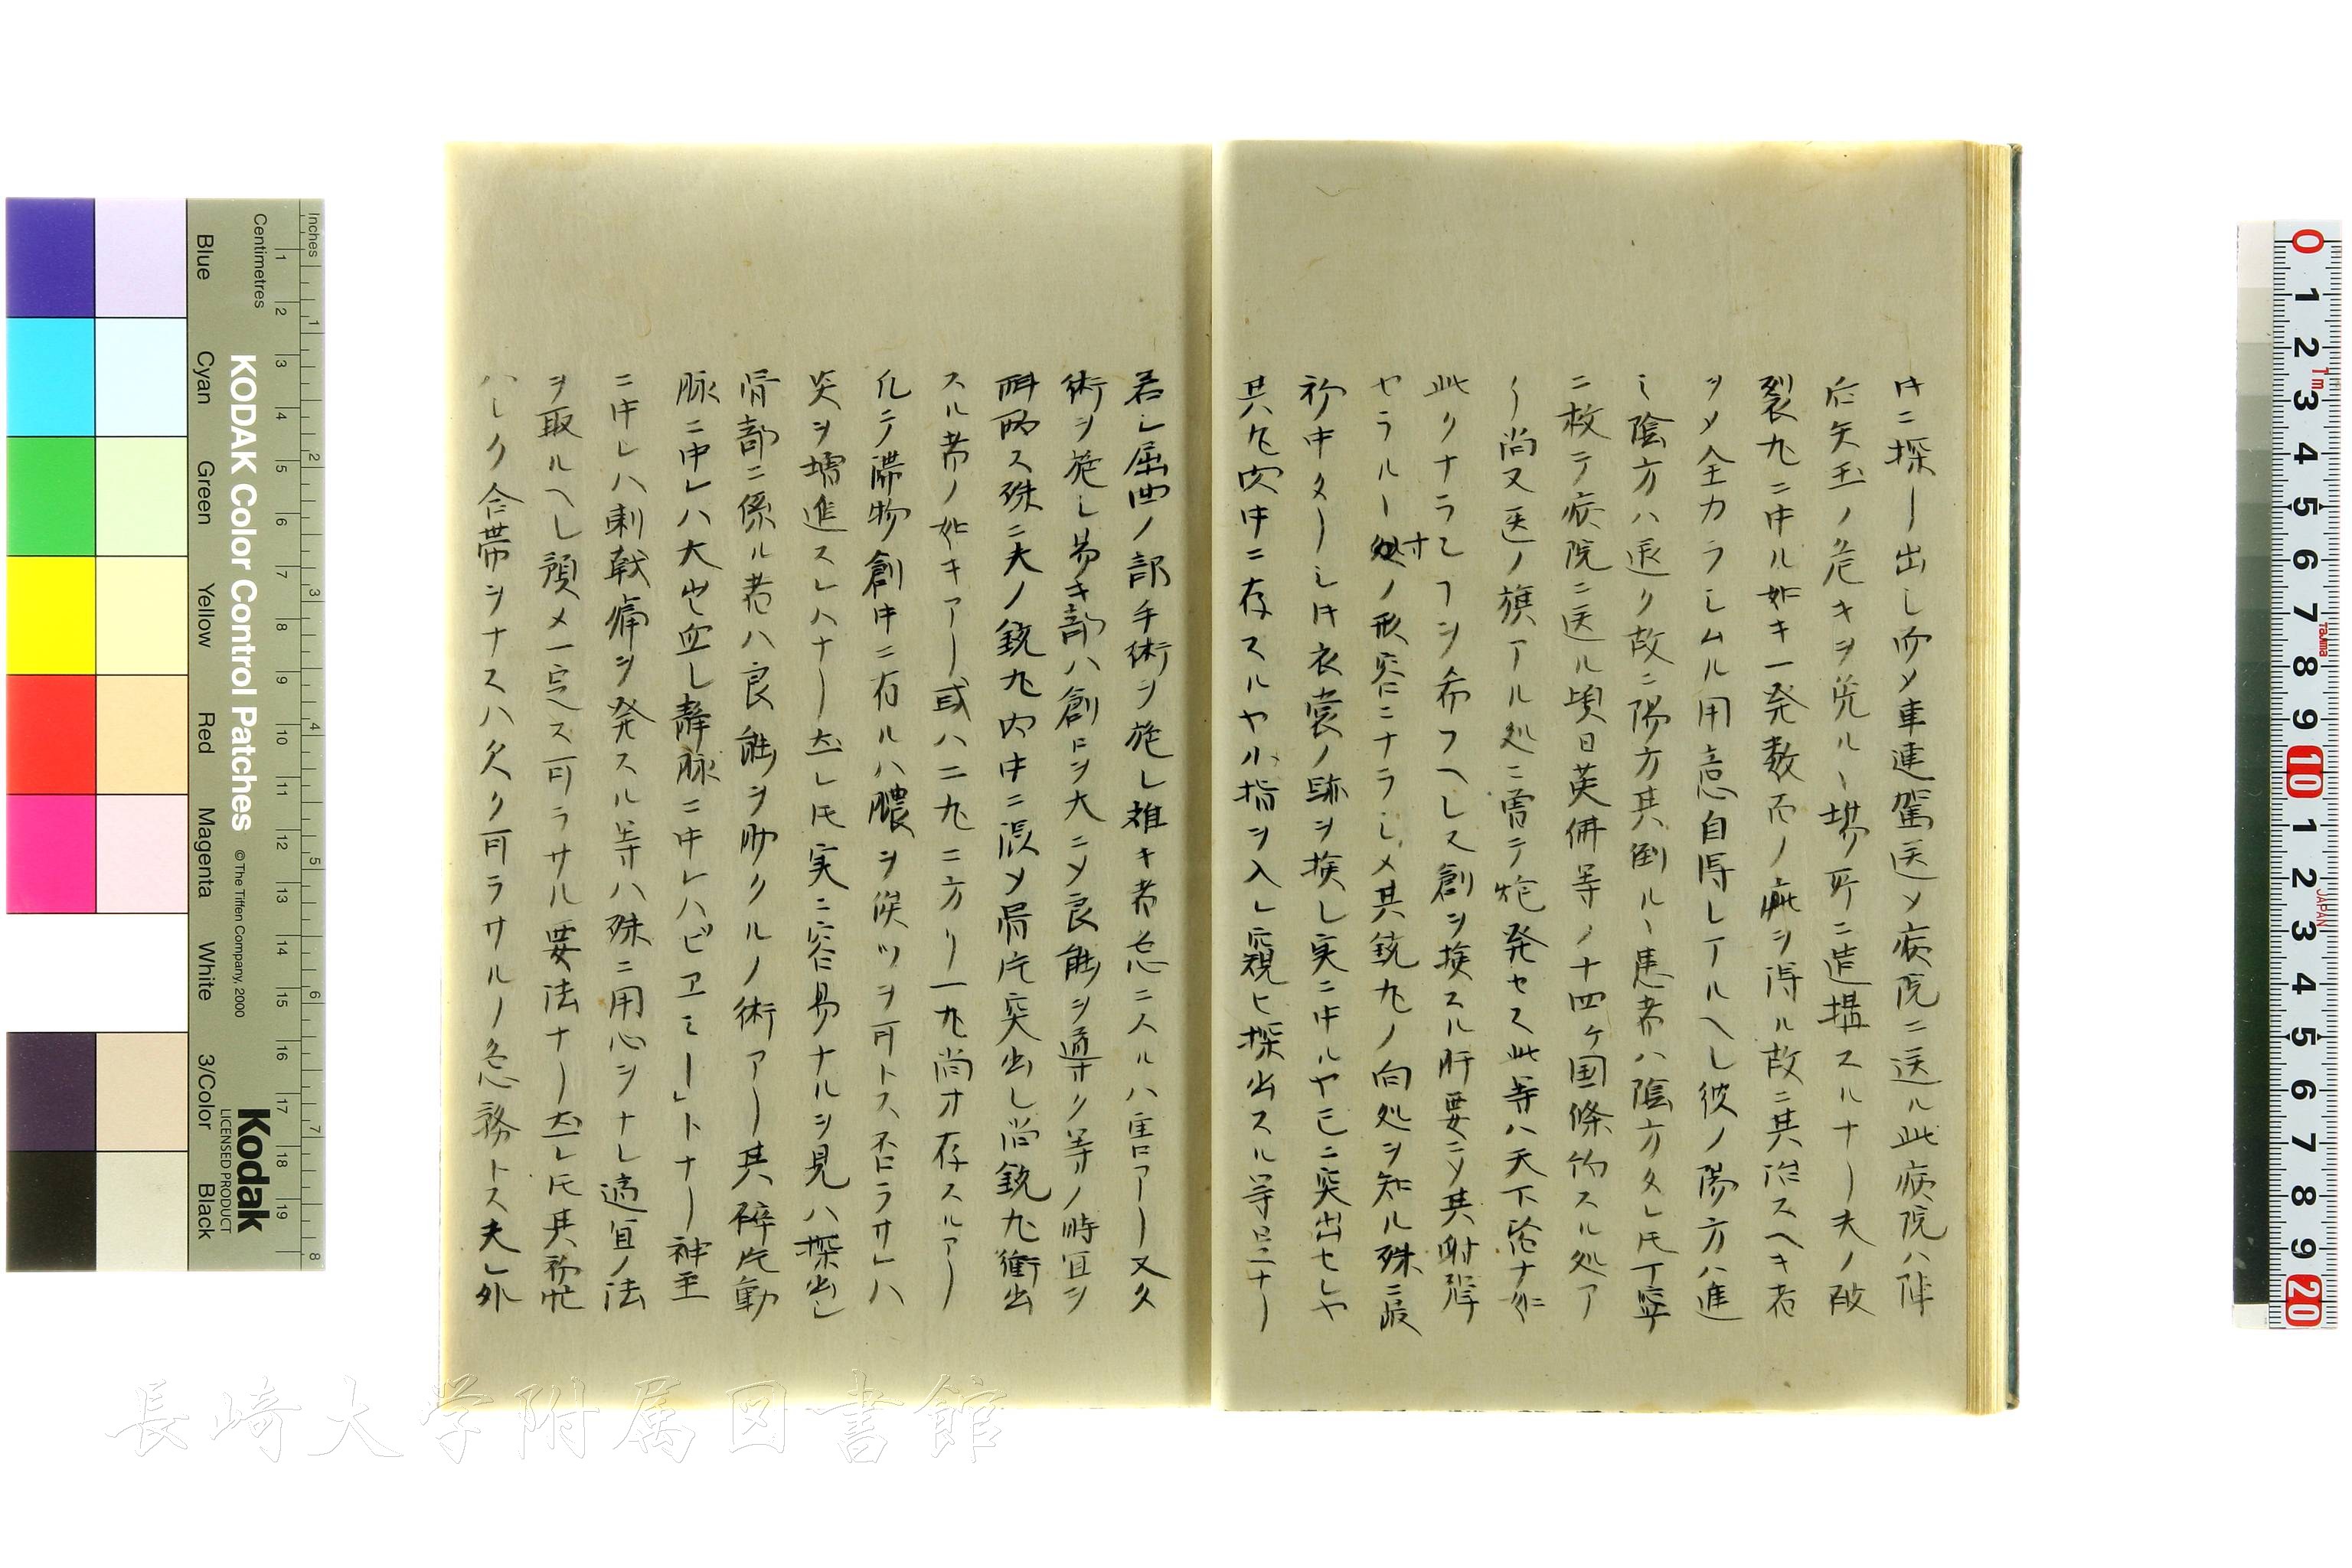 中ニ探リ出シ而〆車連駕送〆病院ニ送ル此病院ハ陣
后矢玉ノ危キヲ免ルヽ場所ニ造搆スルナリ夫ノ破
裂丸ニ中ル如キ一発数百ノ痍ヲ得ル故ニ其治スヘキ者
ヲ〆全カラシムル用意自得シアルヘし彼ノ陽方ハ進
ミ陰方ハ退ク故ニ陽方其倒ルヽ患者ハ陰方タレ𪜈丁寧
ニ救テ病院ニ送ル頃日英佛等ノ十四ケ国條約スル処ア
リ尚又医ノ旗アル処ニ曽テ炮発セス此等ハ天下
此クナラン丁ヲ希フヘし又創ヲ挨スル肝要ニ〆其射弾
セラルヽ処ノ形容ニナラシメ其銃丸ノ向処ヲ知ル殊ニ最
初中タリし片衣裳ノ跡ヲ挨し実ニ中ルヤ已ニ突出セしヤ
其丸肉中ニ存スルヤ小指ヲ入レ窺ヒ探出スル等是ナリ
若し屈曲ノ部手術ヲ施し難キ者忽ニスルハ害アリ又久
術ヲ施し易キ部ハ創口ヲ大ニ〆良能ヲ導ク等ノ時宜ヲ
斟酌ス殊ニ夫ノ銃丸肉中ニ没〆骨片突出し尚銃丸衝出
スル者ノ如キアリ或ハ二丸ニ方リ一丸尚ホ存スルアリ
凡テ滞物創中ニ有ルハ膿ヲ俟ツヲ可トス否ラサレハ
炎ヲ増進スレハナリ然レ𪜈実ニ容易ナルヲ見ハ探出し
骨部ニ係ル者ハ良能ヲ助クルノ術アリ其碎片動
脉ニ中レハ大出血し静脉ニ中レハピヱミー」トナリ神圣
ニ中レハ刺戟痛ヲ発スル等ハ殊ニ用心ヲナし適宜ノ法
ヲ取ルヘし預メ一定ス可ラサル要法ナリ然レ𪜈其初忙
ハしク合帯ヲナスハ欠ク可ラサルノ急務トス夫レ外